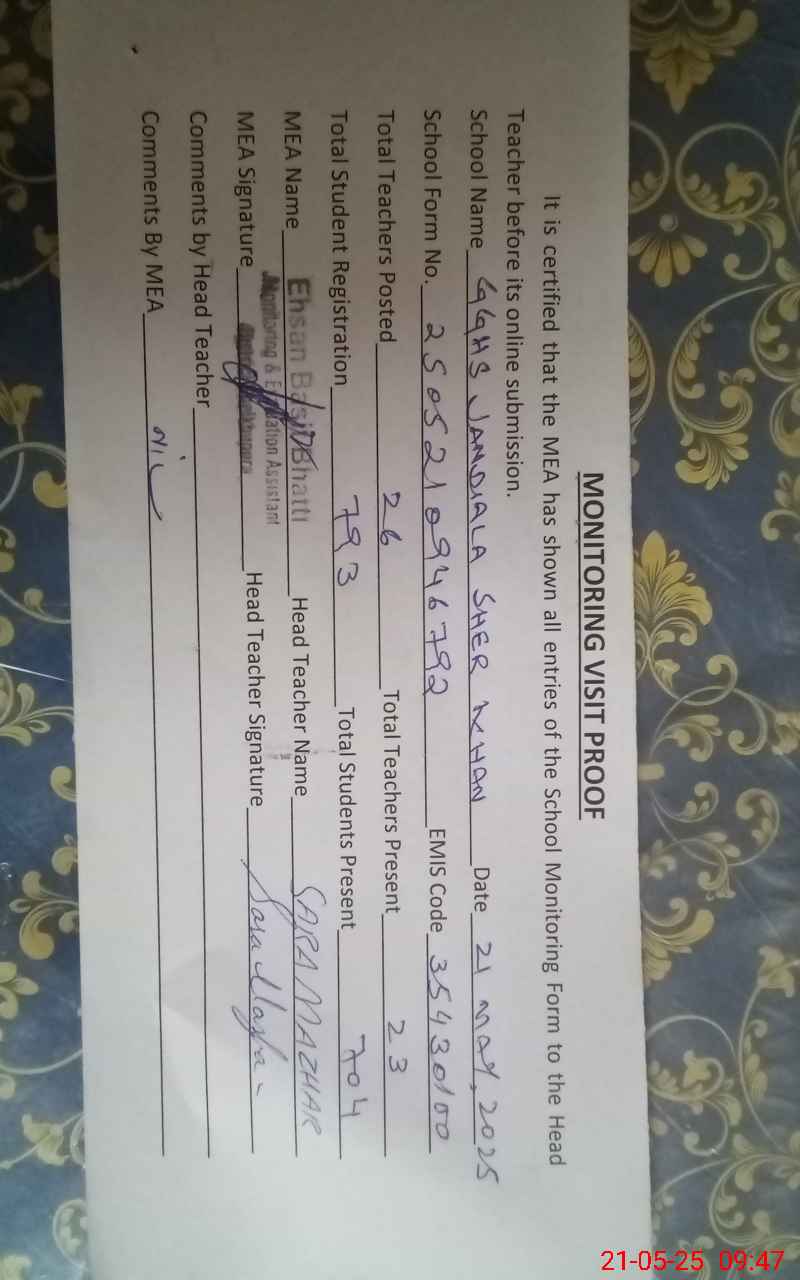 MONITORING VISIT PROOF
It is certified that the MEA has shown all entries of the School Monitoring Form to the Head
Teacher before its online submission.
School Name GGHS JANDIALA SHER KHAN Date 21 MAY, 2025
School Form No. 250521094679​2 EMIS Code 35430100
Total Teachers Posted 26 Total Teachers Present 23
Total Student Registration 793 Total Students Present 704
MEA Name Ehsan Basit Bhatti Head Teacher Name SARA MAZHAR
Monitoring & Evaluation Assistant
MEA Signature Head Teacher Signature Sara Mazhar
Comments by Head Teacher
Comments By MEA Nil
21-05-25 09:47